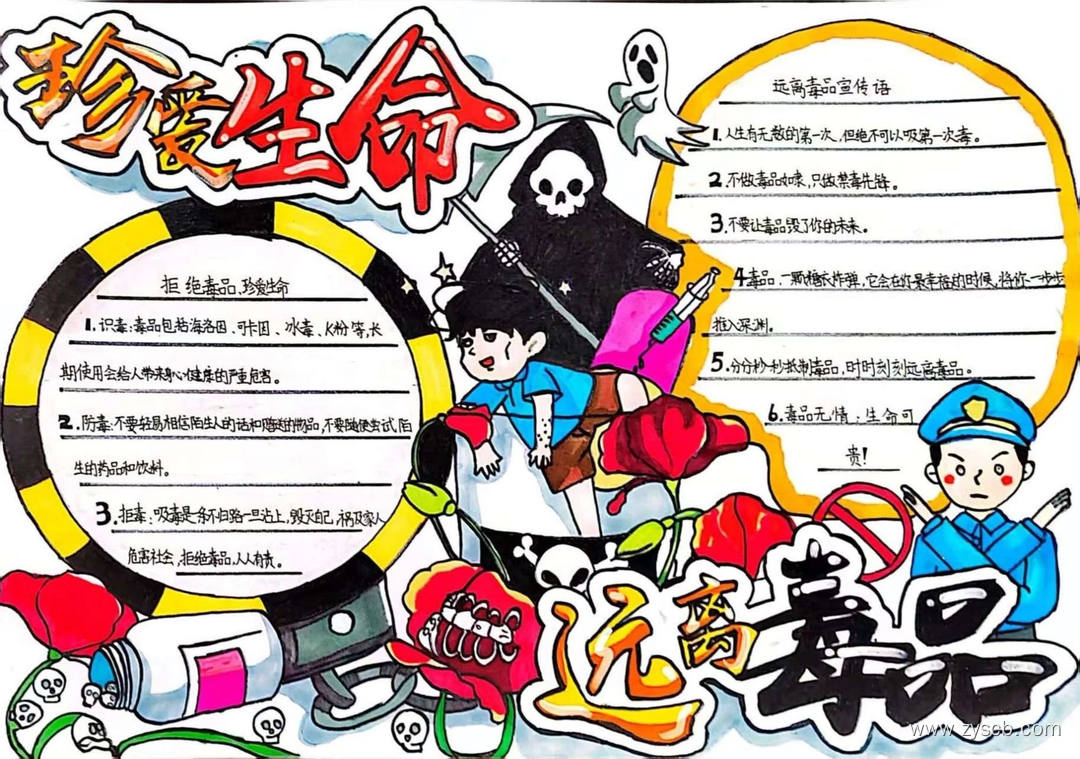 珍爱生命
拒绝毒品,珍爱生命
1.识毒:毒品包括海洛因、可卡因、冰毒、K粉等,长
期使用会给人带来身心健康的严重危害。
2.防毒:不要轻易相信陌生人的话和赠送的物品,不要随便尝试陌
生的药品和饮料。
3.拒毒:吸毒是条不归路一旦沾上,毁灭自己,祸及家人
危害社会,拒绝毒品,人人有责。
远离毒品宣传语
1.人生有无数的第一次,但绝不可以吸第一次毒。
2.不做毒品奴隶,只做禁毒先锋。
3.不要让毒品毁了你的未来。
4毒品,一颗糖衣炸弹,它会在你最幸福的时候,将你一步步
推入深渊。
5.分分秒秒抵制毒品,时时刻刻远离毒品。
6.毒品无情;生命可
贵!
远离毒品
www.zyscb.com